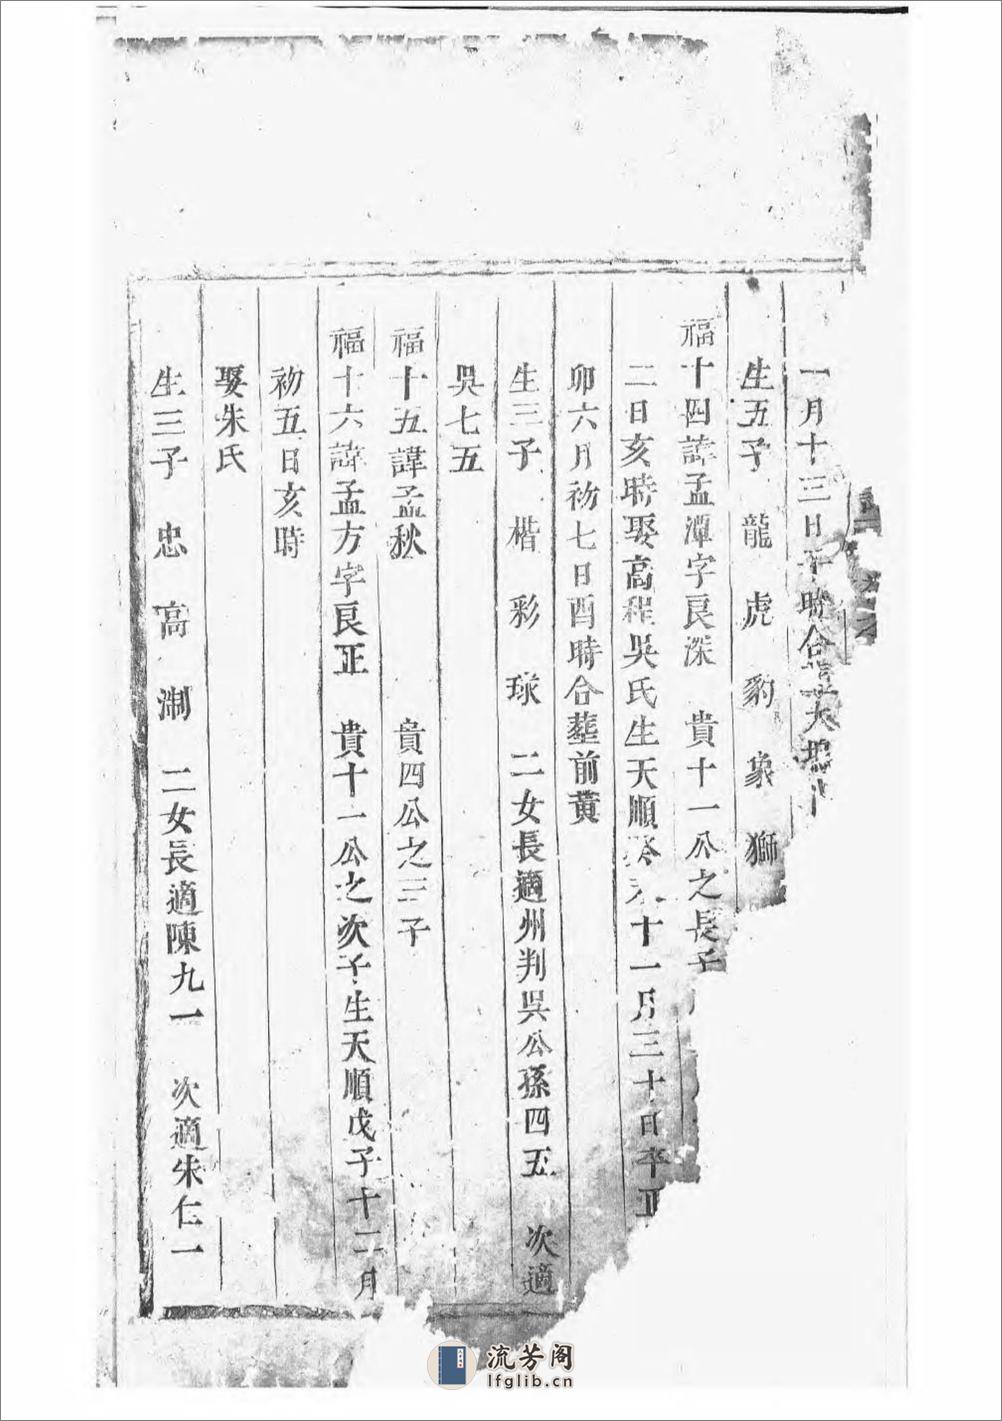 一月十三日午時合葬大塢
生五子 龍 虎 豹 象 獅
福十四諱孟潭字良深 貴十一公之長子
二日亥時娶高程吳氏生天順癸未十一月三十日卒正
卯六月初七日酉時合葬前黃
生三子 楷 彩 球 二女長適州判吳公孫四五 次適
吳七五
福十五諱孟秋 貴四公之三子
福十六諱孟方字良正 貴十一公之次子生天順戊子十二月
初五日亥時
娶朱氏
生三子 忠 高 淛 二女長適陳九一 次適朱仁一
流芳阁
lfglib.cn